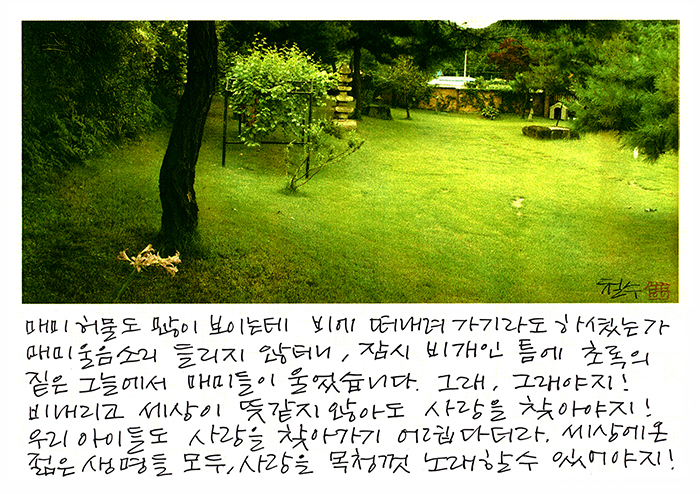 철수
매미허물도 많이 보이는데 비에 떠내려 가기라도 하셨는가
매미울음소리 들리지 않더니, 잠시 비개인 틈에 초록의
짙은 그늘에서 매미들이 울었습니다. 그래, 그래야지!
비내리고 세상이 뜻같지 않아도 사랑을 찾아야지!
우리 아이들도 사랑을 찾아가기 어렵다더라. 세상에 온
젊은 생명들 모두, 사랑을 목청껏 노래할 수 있어야지!